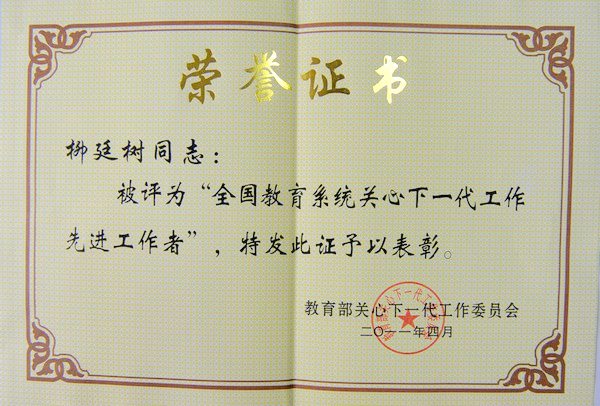 荣誉证书
柳廷树同志：
被评为“全国教育系统关心下一代工作
先进工作者”，特发此证予以表彰。
教育部关心下一代工作委员会
二〇一一年四月